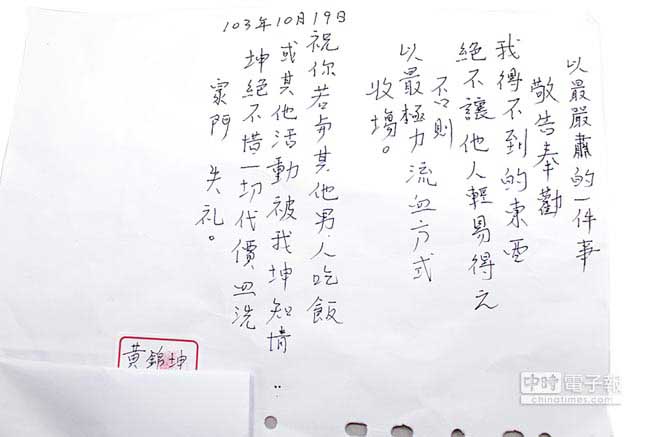 以最嚴肅的一件事
敬告奉勸
我得不到的東西
絕不讓他人輕易得之
否則
以最極力流血方式
收場。
103年10月19日
祝你若與其他男人吃飯
或其他活動被我坤知情‥
坤絕不惜一切代價血洗
家門 失礼。
黃錦坤
中時電子報
chinatimes.com